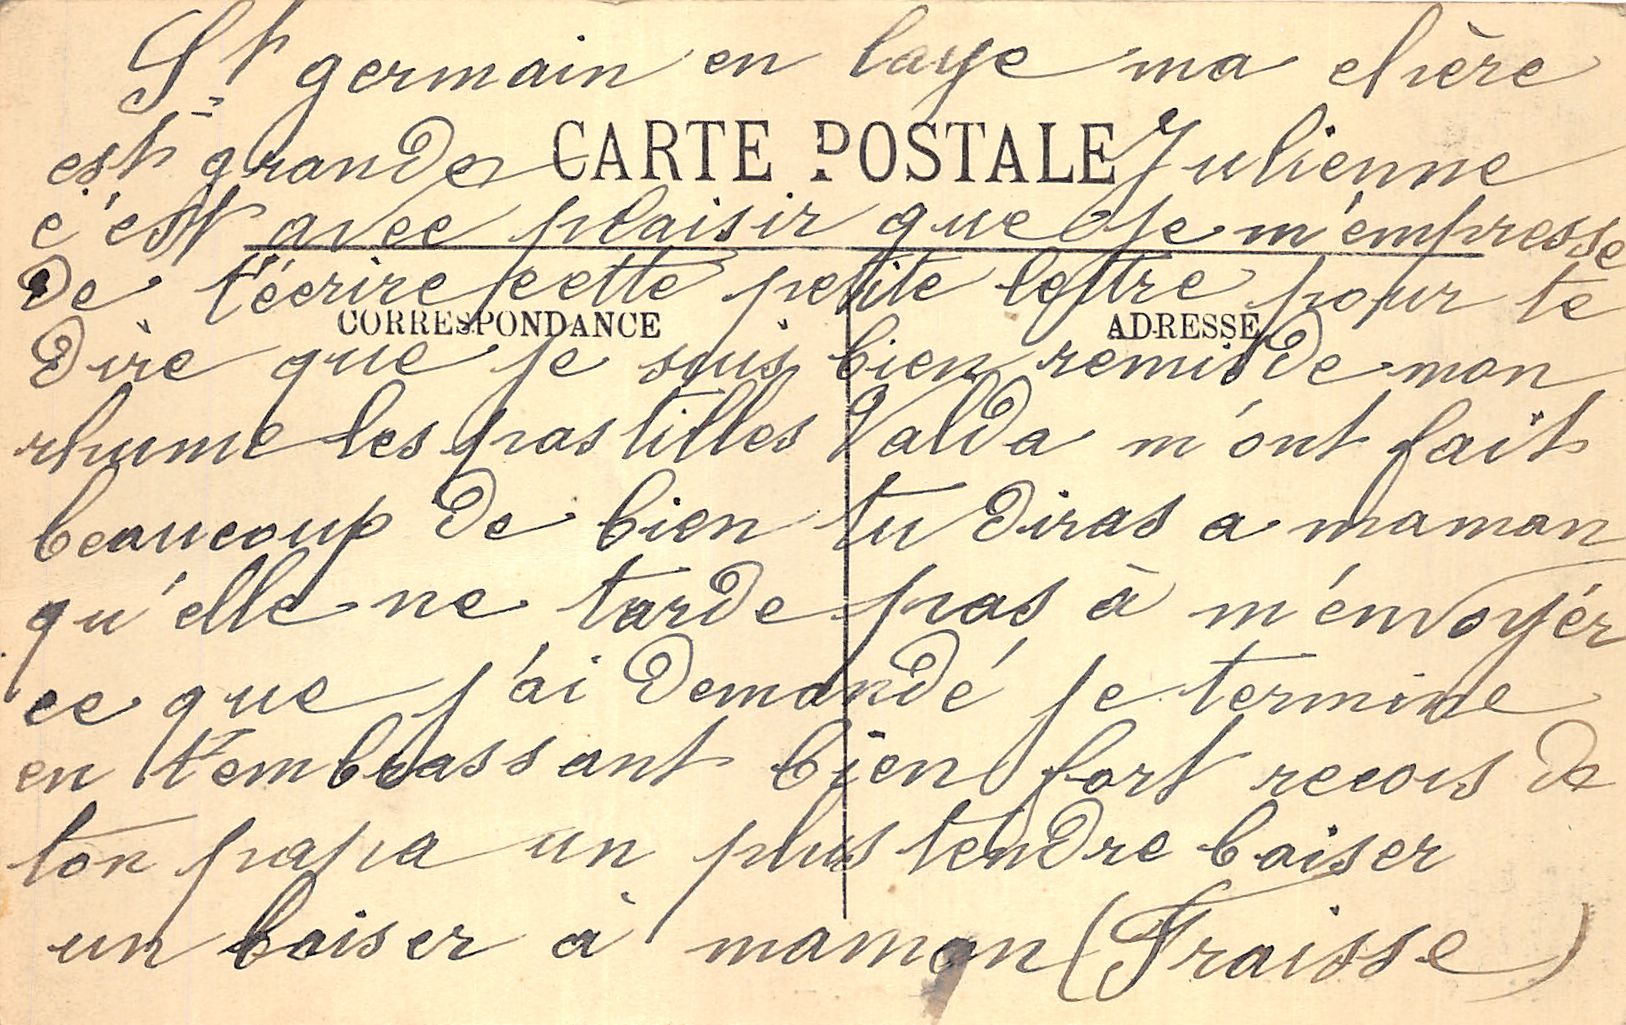 St germain en laye ma chère
est grande CARTE POSTALE Julienne
c'est avec plaisir que je m'empresse
de t'écrire cette petite lettre pour te
CORRESPONDANCE ADRESSE
dire que je suis bien remis de mon
rhume les pastilles Valda m'ont fait
beaucoup de bien tu diras a maman
qu'elle ne tarde pas à m'énvoyér
ce que j'ai demandé je termine
en t'embrassant bien fort recois de
ton papa un plus tendre baiser
un baiser à maman (Fraisse)